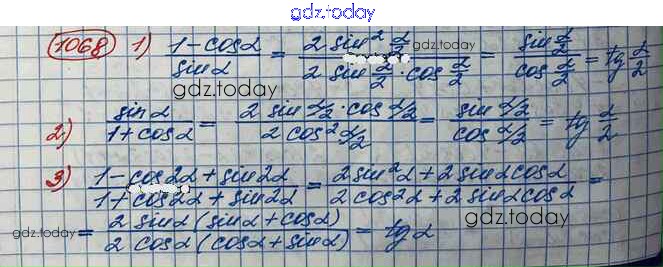 gdz.today
1068 1) (1-cosα)/(sinα) = (2 sin² α/2)/(2 sin α/2 · cos α/2) = (sin α/2)/(cos α/2) = tg α/2
gdz.today
gdz.today
2) (sinα)/(1+cosα) = (2 sin α/2 · cos α/2)/(2 cos² α/2) = (sin α/2)/(cos α/2) = tg α/2
3) (1-cos2α+sin2α)/(1+cos2α+sin2α) = (2sin²α+2sinαcosα)/(2cos²α+2sinαcosα) =
= (2 sinα(sinα+cosα))/(2 cosα(cosα+sinα)) = tgα
gdz.today
gdz.today